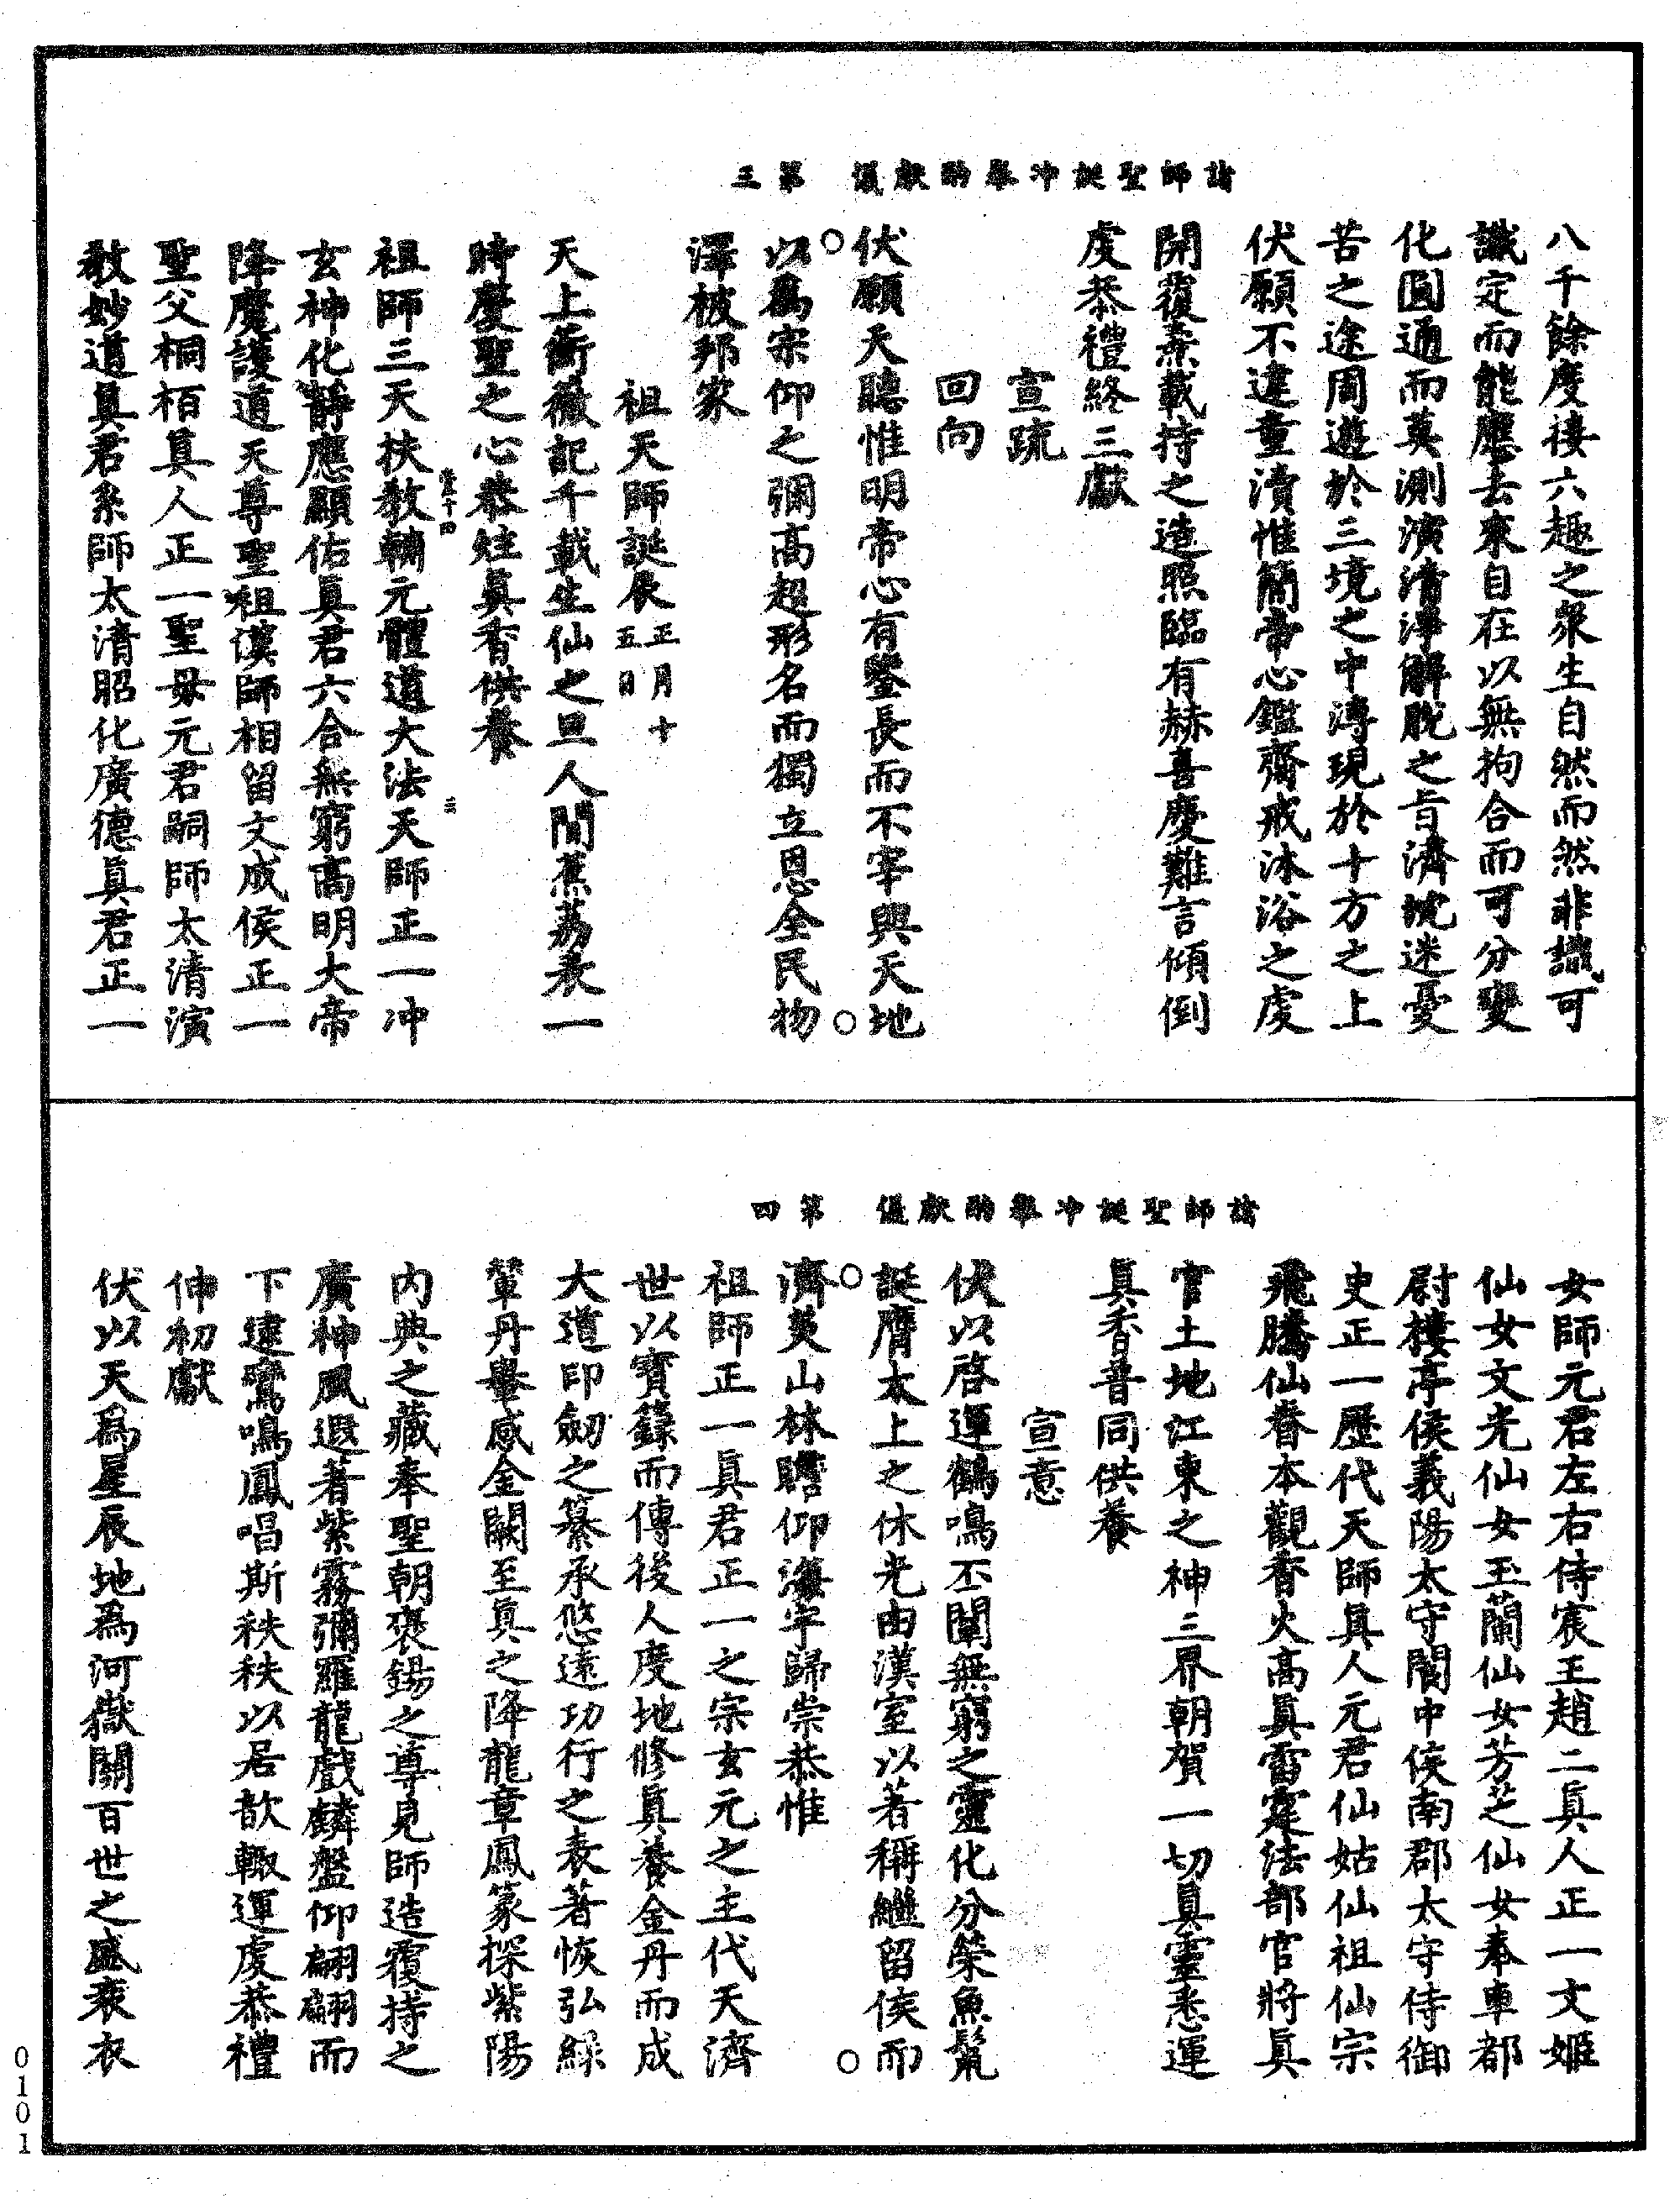 諸師聖誕沖舉酌獻儀　第三
八千餘度接六趣之衆生自然而然非識可
識定而能應去來自在以無拘合而可分變
化圓通而莫測演清淨解脫之旨濟沈迷憂
苦之途周遊於三境之中溥現於十方之上
伏願不違童瀆惟簡帝心鑑齋戒沐浴之虔
開覆燾載持之造照臨有赫喜慶難言傾倒
虔恭禮終三獻
宣疏
回向
伏願天聽惟明帝心有鑒長而不宰與天地
以爲宗仰之彌高超形名而獨立恩全民物
澤被邦家
祖天師誕辰正月十五日
天上衢徽記千載生仙之旦人間蕉荔表一
時慶聖之心恭炷眞香供養
祖師三天扶教輔元體道大法天師正一沖
玄神化靜應顯佑眞君六合無窮高明大帝
降魔護道天尊聖祖漢師相留文成侯正一
聖父桐栢眞人正一聖母元君嗣師太清演
教妙道眞君系師太清昭化廣德眞君正一
諸師聖誕沖舉酌獻儀　第四
女師元君左右侍宸王趙二眞人正一文姬
仙女文光仙女玉蘭仙女芳芝仙女奉車都
尉樓亭侯義陽太守閬中侯南郡太守侍御
史正一歷代天師眞人元君仙姑仙祖仙宗
飛騰仙眷本觀香火高眞雷霆法部官將眞
官土地江東之神三界朝賀一切眞靈悉運
眞香普同供養
宣意
伏以啓運鶴鳴丕闡無窮之靈化分榮魚鬣
誕膺太上之休光由漢室以著稱繼留侯而
濟美山林瞻仰海宇歸崇恭惟
祖師正一眞君正一之宗玄元之主代天濟
世以寶籙而傳後人度地修眞養金丹而成
大道印劒之纂承悠遠功行之表著恢弘綠
輦丹轝感金闕至眞之降龍章鳳篆探紫陽
內典之藏奉聖朝褒錫之尊見師造覆持之
廣神風遐著紫霧彌羅龍戲麟盤仰翩翩而
下逮鸞鳴鳳唱斯秩秩以居歆輙運虔恭禮
伸初獻
伏以天爲星辰地爲河嶽關百世之盛衰衣
0101